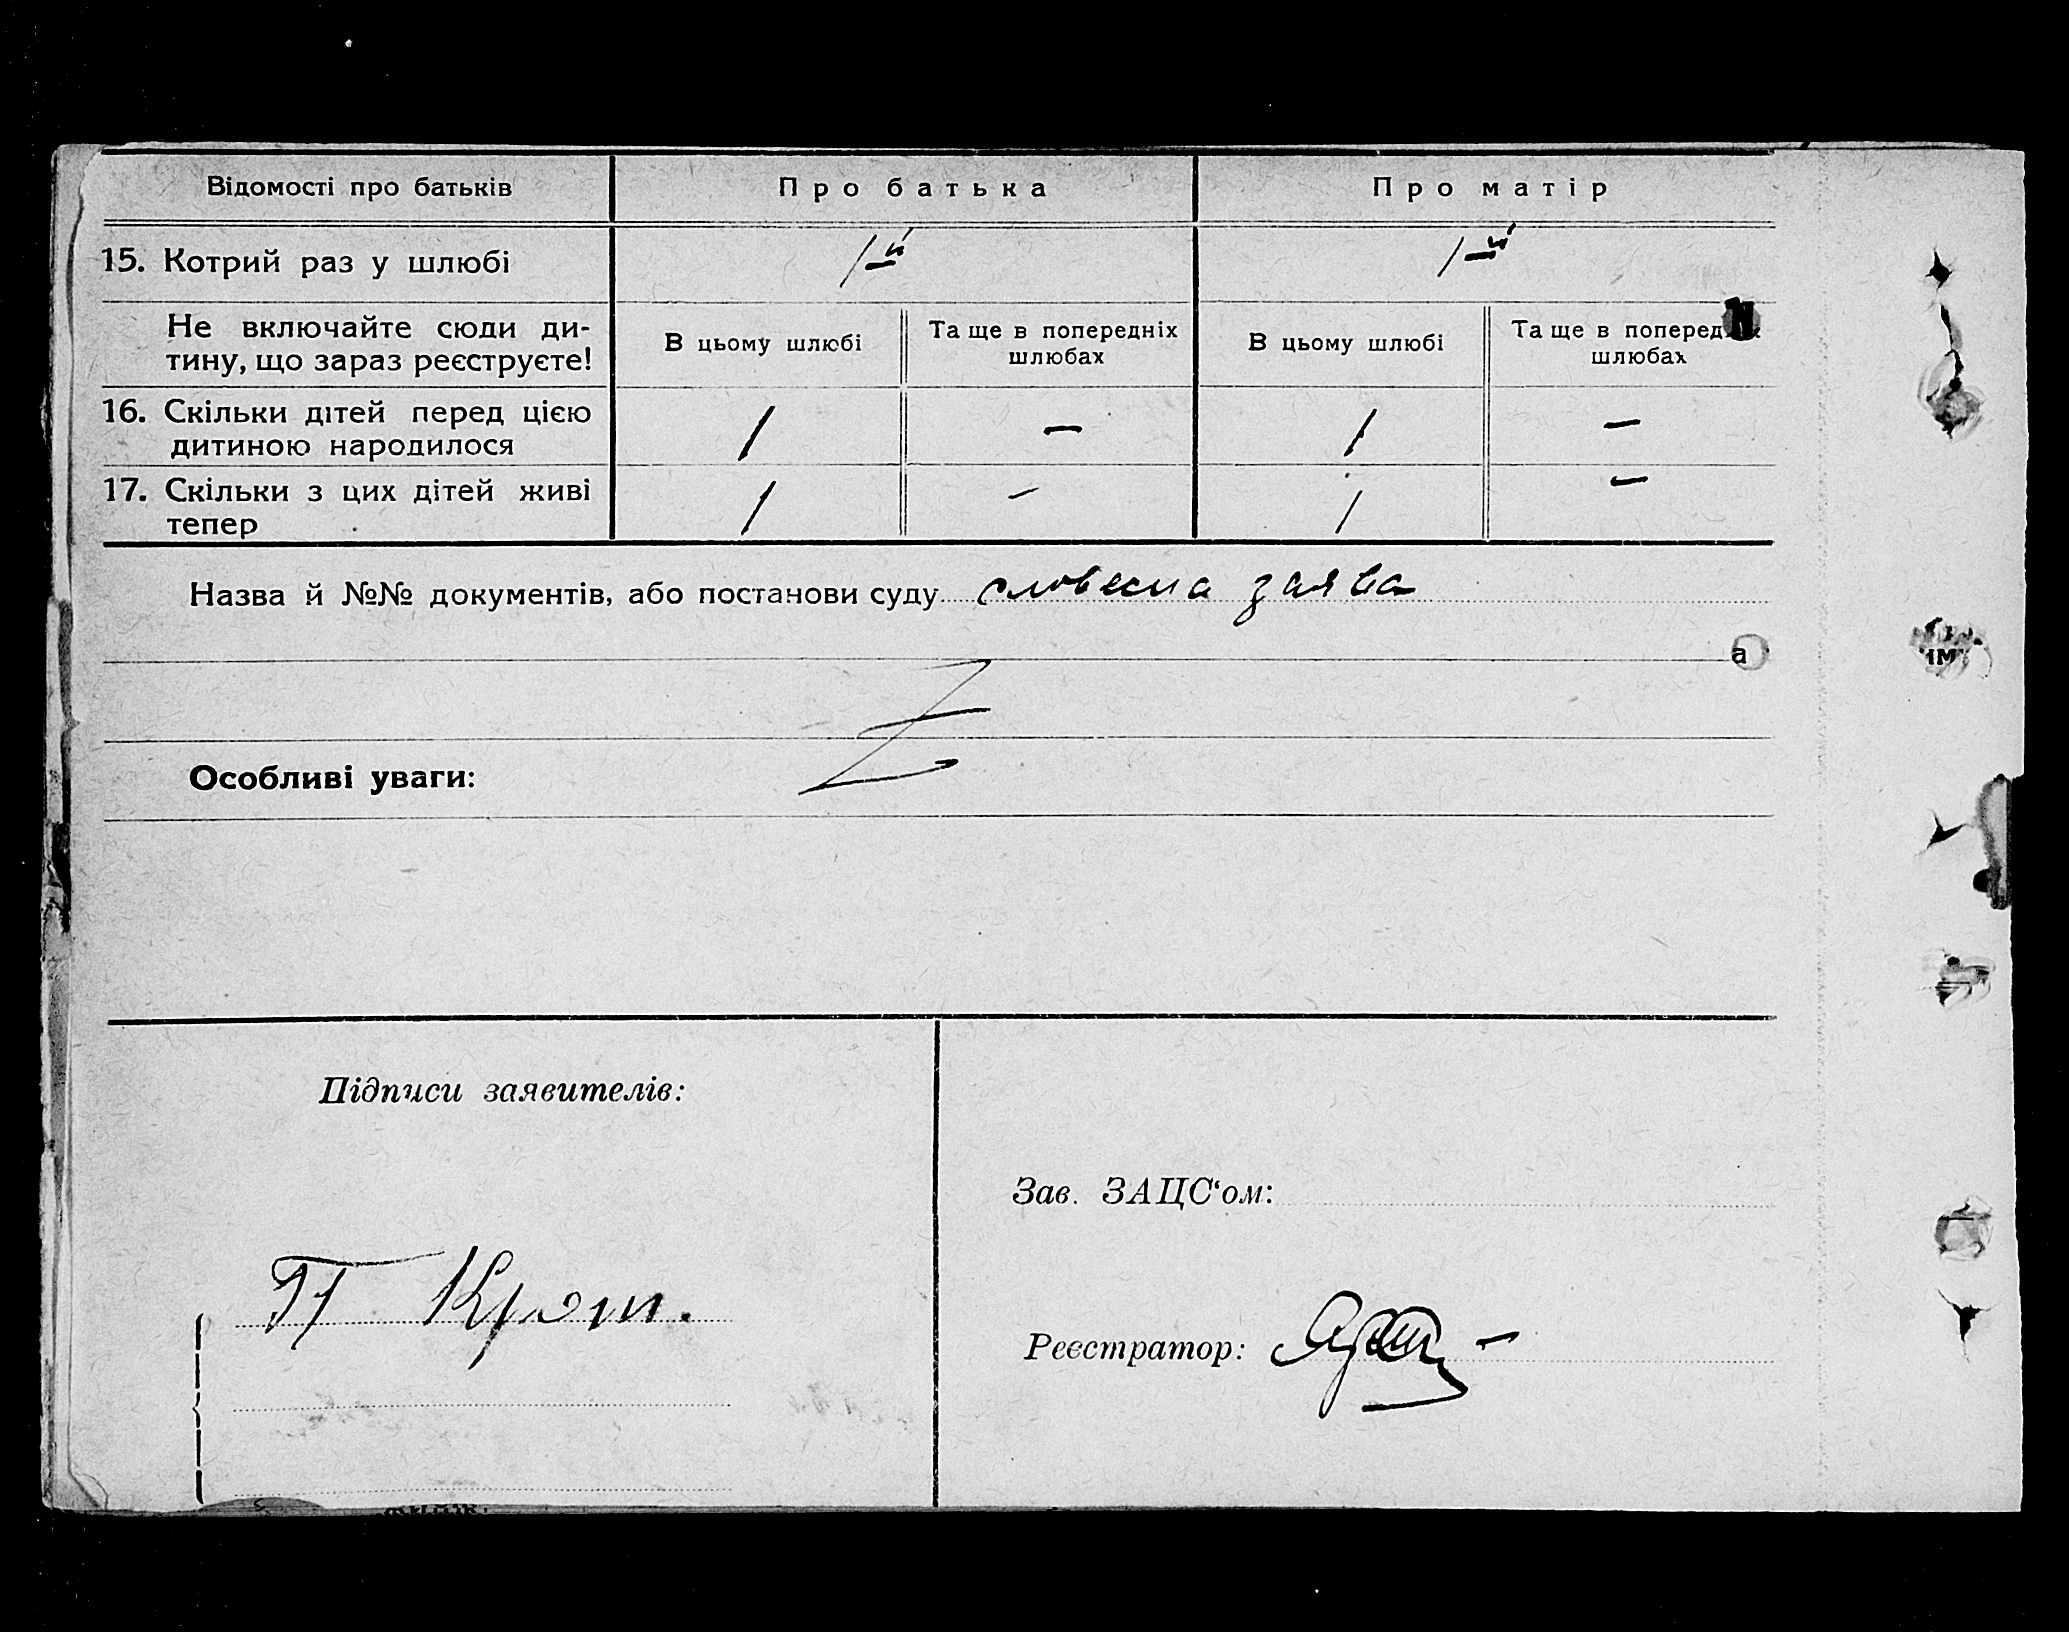 Відомості про батьків Про батька Про матір
15. Котрий раз у шлюбі 1-й 1-й
Не включайте сюди ди-
тину, що зараз реєструєте!
В цьому шлюбі Та ще в попередніх шлюбах В цьому шлюбі Та ще в попередніх шлюбах
16. Скільки дітей перед цією
дитиною народилося 1 — 1 —
17. Скільки з цих дітей живі
тепер 1 — 1 —
Назва й №№ документів, або постанови суду словесна заява
а
Особливі уваги:
Підписи заявителів:
Зав. ЗАЦС‘ом:
П Крот.
Реєстратор: